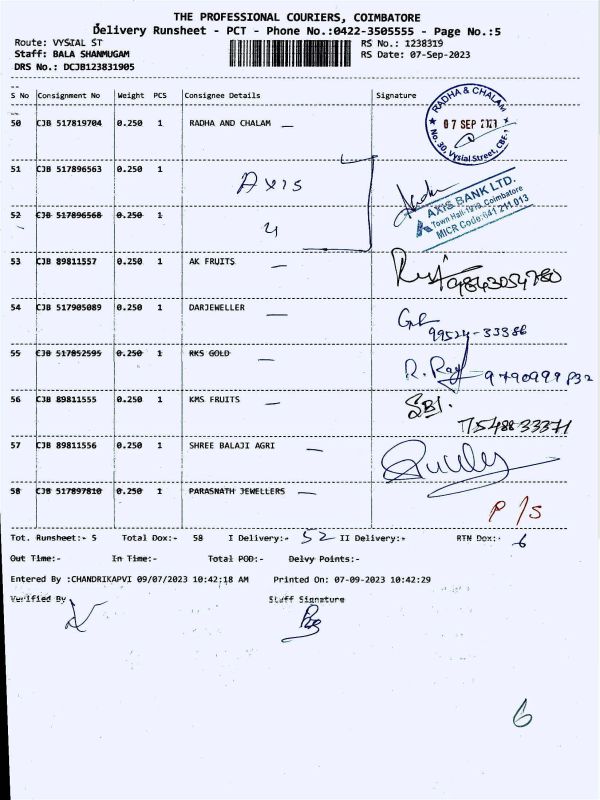 THE PROFESSIONAL COURIERS, COIMBATORE
Delivery Runsheet - PCT - Phone No.:0422-3505555 - Page No.:5
Route: VYSIAL ST RS No.: 1238319
Staff: BALA SHANMUGAM RS Date: 07-Sep-2023
DRS No.: DCJB123831905
S No Consignment No Weight PCS Consignee Details Signature
50 CJB 517819704 0.250 1 RADHA AND CHALAM
RADHA & CHALAM
07 SEP
No. 30, Vysial Street, CBE-1
51 CJB 517896563 0.250 1
Axis
AXIS BANK LTD.
Town Hall-1979, Coimbatore
MICR Code:641 211 013
52 CJB 517896568 0.250 1
4
53 CJB 89811557 0.250 1 AK FRUITS
9843054780
54 CJB 517905089 0.250 1 DARJEWELLER
99524-33386
55 CJB 517852595 0.250 1 RKS GOLD
R. Raj
56 CJB 89811555 0.250 1 KMS FRUITS
7548833371
57 CJB 89811556 0.250 1 SHREE BALAJI AGRI
58 CJB 517897810 0.250 1 PARASNATH JEWELLERS
P/S
Tot. Runsheet:- 5 Total Dox:- 58 I Delivery:- 52 II Delivery:- RTN Dox:- 6
Out Time:- In Time:- Total POD:- Delvy Points:-
Entered By :CHANDRIKAPVI 09/07/2023 10:42:18 AM Printed On: 07-09-2023 10:42:29
Verified By Staff Signature
6